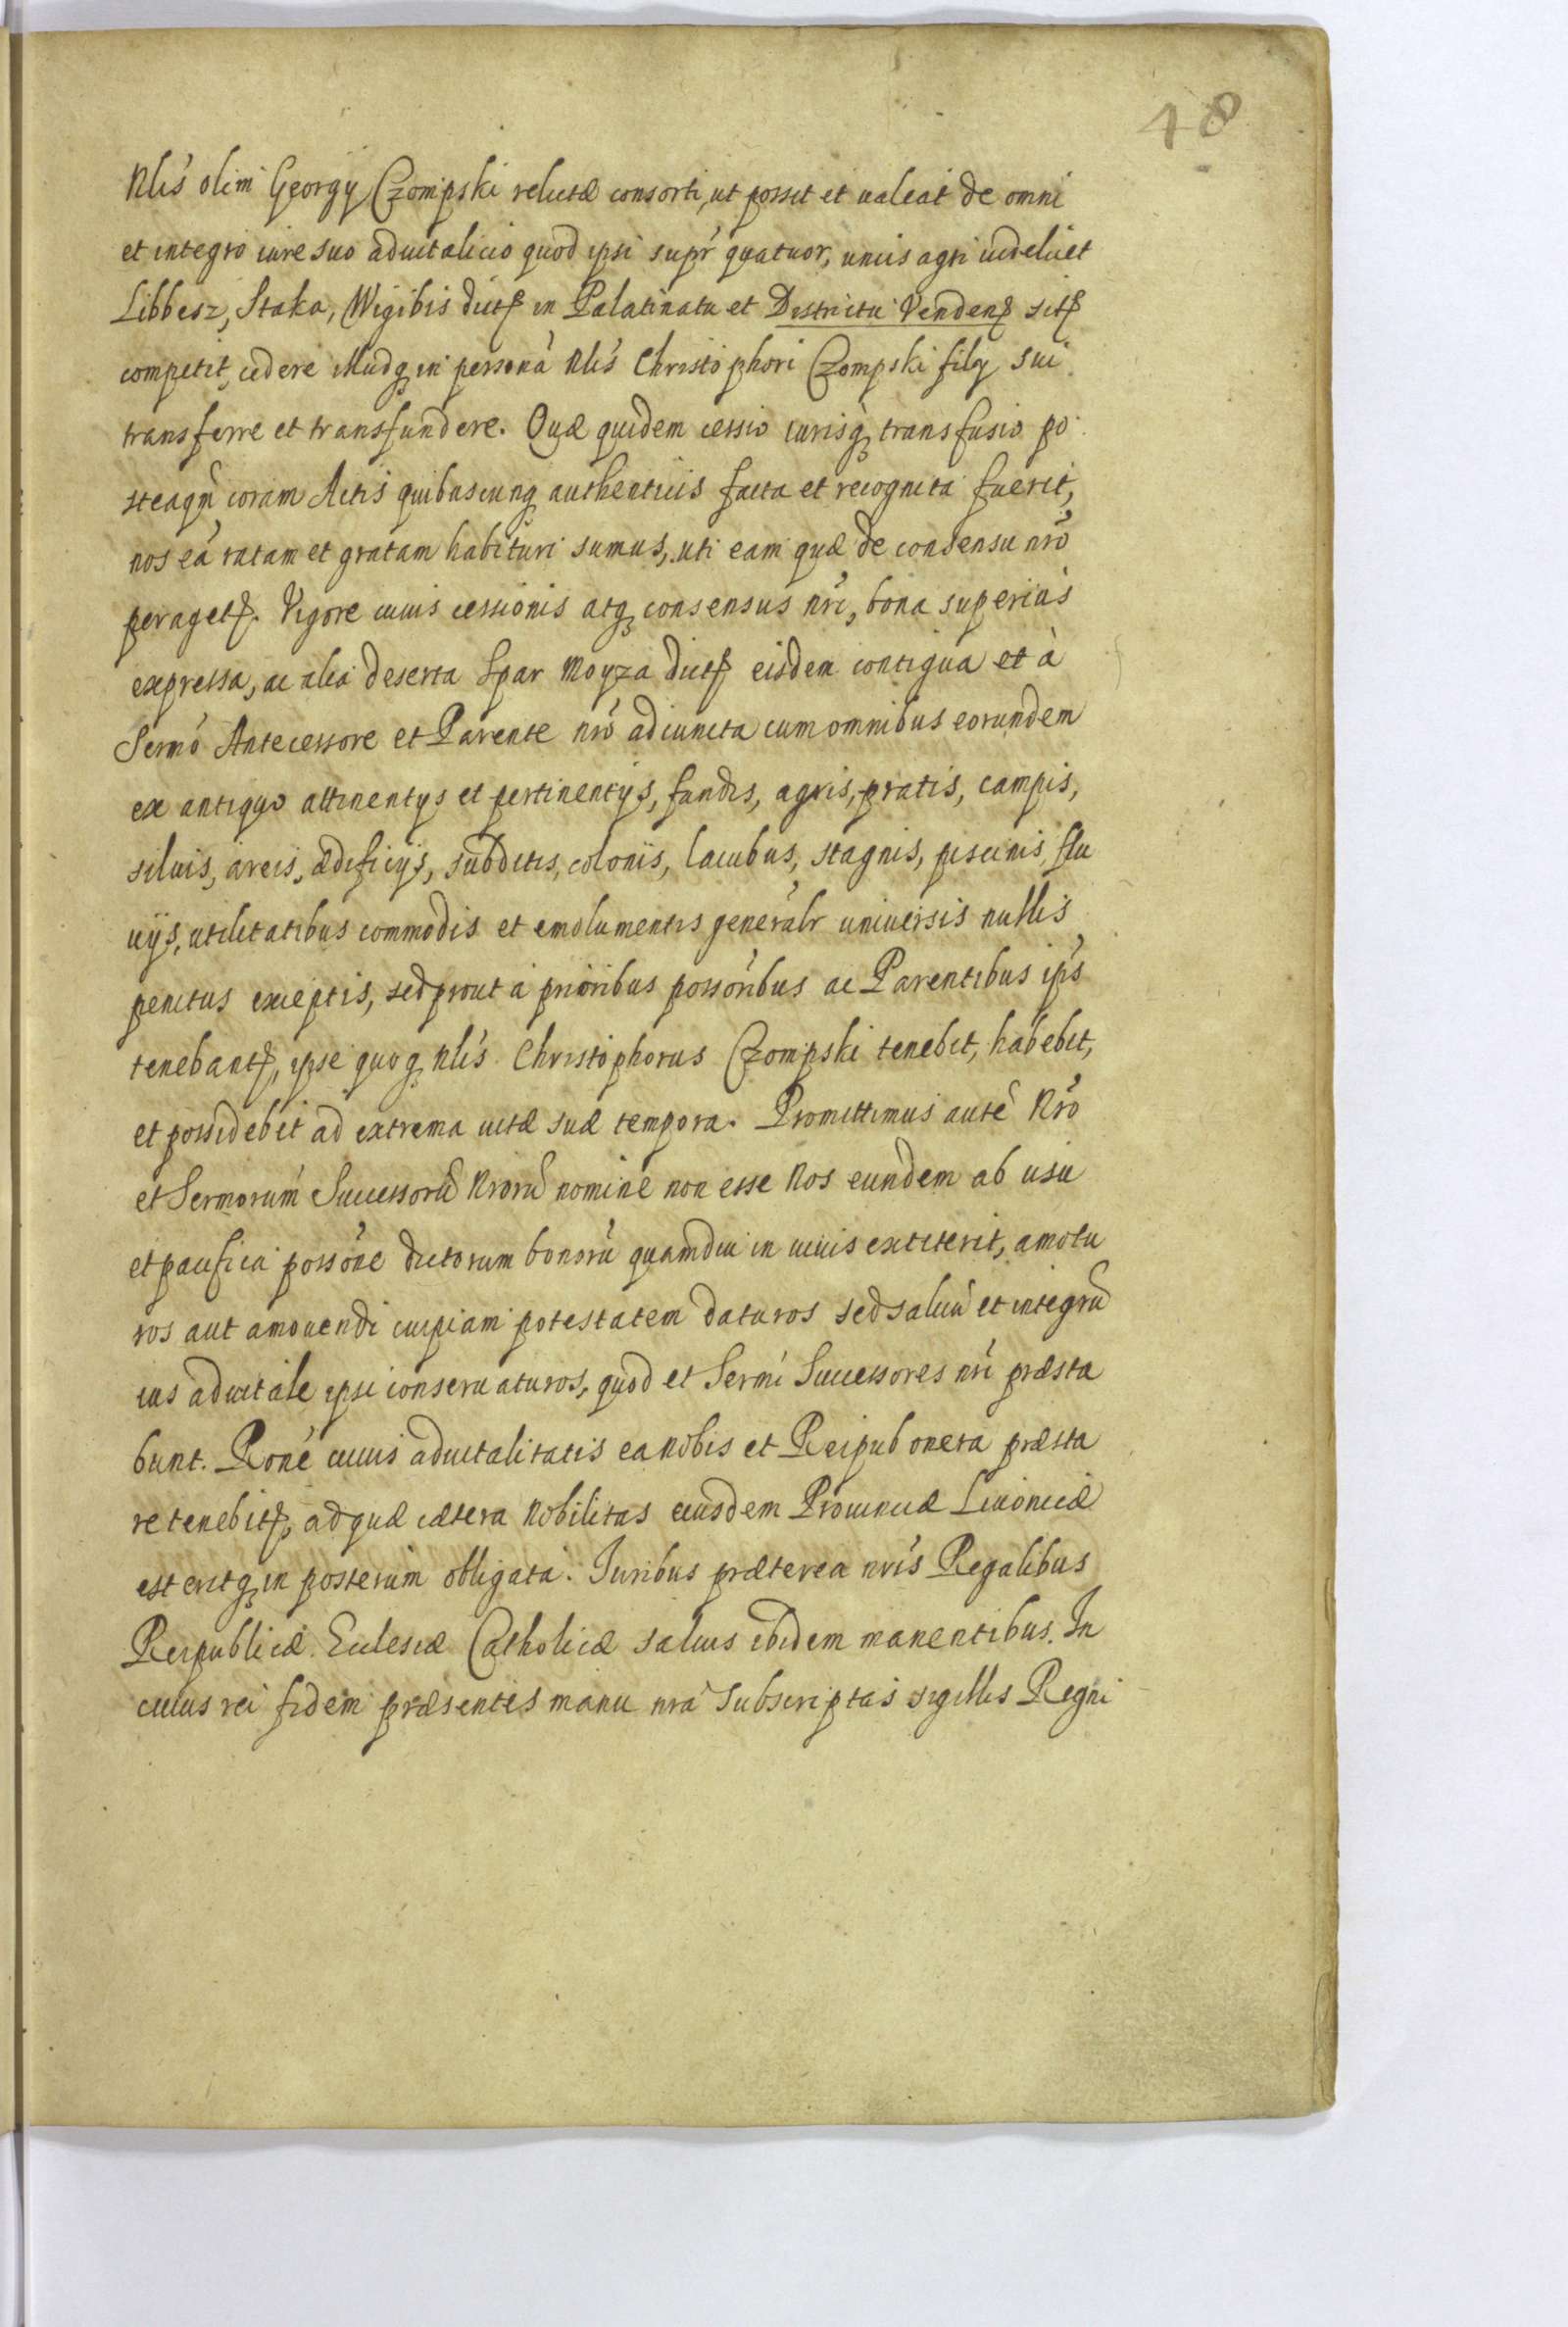 48
Nlis olim Georgy Czompski relictæ consorti, ut possit et ualeat de omni
et integro iure suo aduitalicio quod ipsi supr quatuor, uncis agri uidelicet
Libbesz, Staka, Wigibis dictꝭ in Palatinatu et Districtu Vendenꝭ sitꝭ
competit, cedere illudqꝫ in personã Nlis Christophori Czompski filij sui
transferre et transfundere. Quæ quidem cessio iurisqꝫ transfusio po
steaqũ coram Actis quibuscunqꝫ authenticis facta et recognita fuerit,
nos eã ratam et gratam habituri sumus, uti eam quæ de consensu nrõ
peragetꝭ. Vigore cuius cessionis atqꝫ consensus nri, bona superiùs
expressa, ac alia deserta Spar Moyza dictꝭ eisdem contigua et à
Sermõ Antecessore et Parente nrõ adiuncta cum omnibus eorundem
ex antiquo attinentijs et pertinentijs, fundis, agris, pratis, campis,
siluis, areis, ædificijs, subditis, colonis, lacubus, stagnis, piscinis, flu
uijs, utilitatibus commodis et emolumentis generalr uniuersis nullis
penitus exceptis, sed prout à prioribus possoribus ac Parentibus ipŝ
tenebantꝭ, ipse quoqꝫ Nlis Christophorus Czompski tenebit, habebit,
et possidebit ad extrema uitæ suæ tempora. Promittimus autẽ Nrõ
et Sermorum Successorũ Nrorũ nomine non esse Nos eundem ab usu
et pacifica possone dictorum bonorũ quamdiu in uiuis extiterit, amotu
ros aut amouendi cuipiam potestatem daturos sed saluũ et integrũ
ius aduitale ipsi conseruaturos, quod et Sermi Successores nri præsta
bunt. Rone cuius aduitalitatis ea Nobis et Reipub onera præsta
re tenebitꝭ, ad quæ cætera Nobilitas eiusdem Prouinciæ Liuonicæ
est eritqꝫ in posterum obligata. Iuribus præterea nris Regalibus
Reipublicæ Eclesiæ Catholicæ saluis ibidem manentibus. In
cuius rei fidem præsentes manu nrã subscriptas sigillis Regni